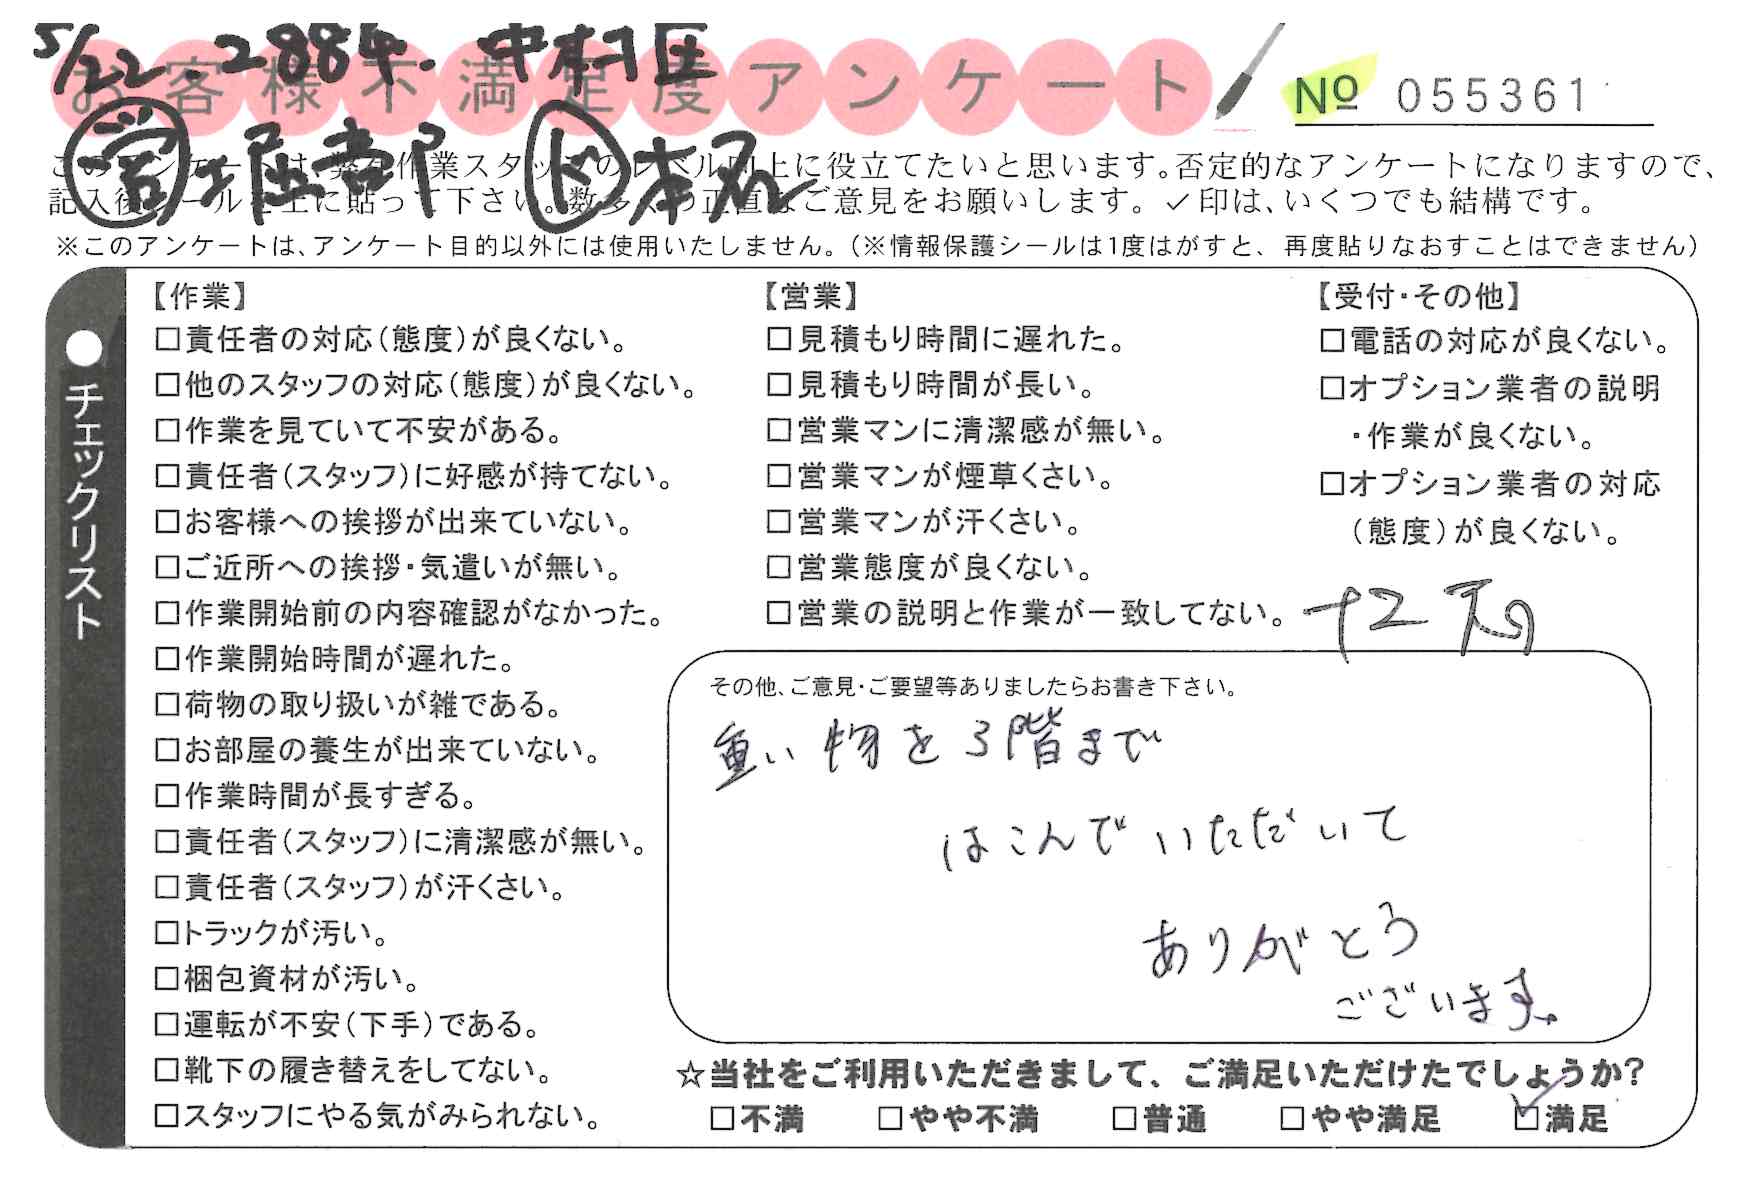 5/22 . 2884. 中村区
お客様不満足度アンケート
Nº 055361
営 堀部 ド 本
このアンケートは、弊社作業スタッフのレベル向上に役立てたいと思います。否定的なアンケートになりますので、
記入後シールを上に貼って下さい。数多くの正直なご意見をお願いします。✓印は、いくつでも結構です。
※このアンケートは、アンケート目的以外には使用いたしません。（※情報保護シールは1度はがすと、再度貼りなおすことはできません）
●チェックリスト
【作業】
□責任者の対応（態度）が良くない。
□他のスタッフの対応（態度）が良くない。
□作業を見ていて不安がある。
□責任者（スタッフ）に好感が持てない。
□お客様への挨拶が出来ていない。
□ご近所への挨拶・気遣いが無い。
□作業開始前の内容確認がなかった。
□作業開始時間が遅れた。
□荷物の取り扱いが雑である。
□お部屋の養生が出来ていない。
□作業時間が長すぎる。
□責任者（スタッフ）に清潔感が無い。
□責任者（スタッフ）が汗くさい。
□トラックが汚い。
□梱包資材が汚い。
□運転が不安（下手）である。
□靴下の履き替えをしてない。
□スタッフにやる気がみられない。
【営業】
□見積もり時間に遅れた。
□見積もり時間が長い。
□営業マンに清潔感が無い。
□営業マンが煙草くさい。
□営業マンが汗くさい。
□営業態度が良くない。
□営業の説明と作業が一致してない。
【受付・その他】
□電話の対応が良くない。
□オプション業者の説明
・作業が良くない。
□オプション業者の対応
（態度）が良くない。
その他、ご意見・ご要望等ありましたらお書き下さい。
重い物を3階まで
はこんでいただいて
ありがとう
ございます。
☆当社をご利用いただきまして、ご満足いただけたでしょうか？
□不満 □やや不満 □普通 □やや満足 ☑満足